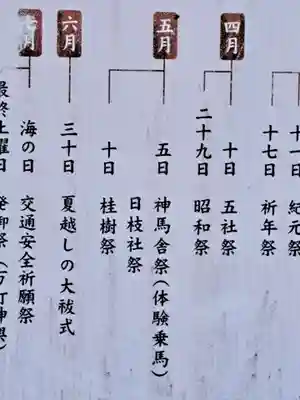 十一日 紀元祭
十七日 祈年祭
四月
十日 五社祭
二十九日 昭和祭
五月
五日 神馬舎祭(体験乗馬)
日枝社祭
十日 桂樹祭
六月
三十日 夏越しの大祓式
七月
海の日 交通安全祈願祭
最終土曜日 発御祭(万灯神輿)